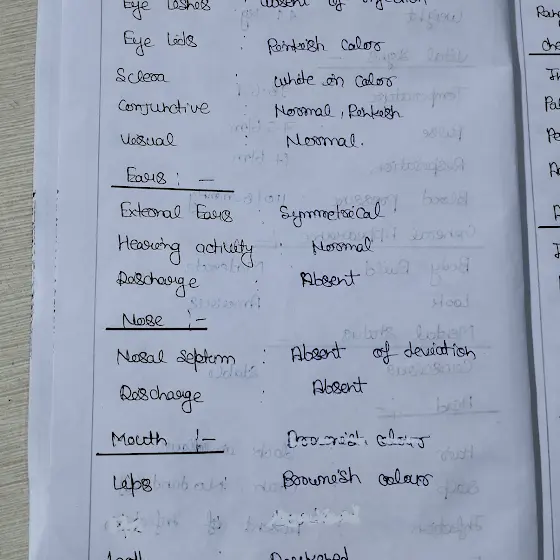 Eye Lashes : absent of infection
Eye Lids : Pinkish color
Sclera : white in color
Conjunctive : Normal, Pinkish
Visual : Normal.
Ears :-
External Ears : Symmetrical
Hearing activity : Normal
Discharge : Absent
Nose :-
Nasal septum : Absent of deviation
Discharge : Absent
Mouth :-
Lips : Brownish colour